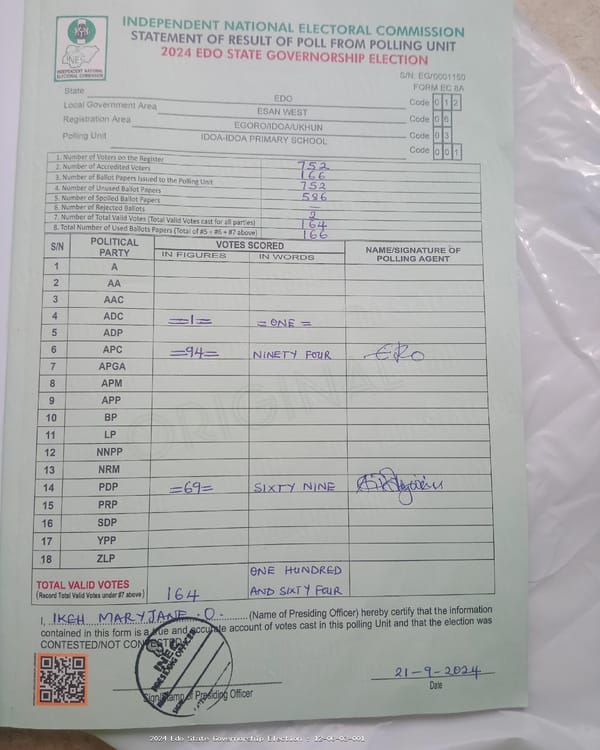 INDEPENDENT NATIONAL ELECTORAL COMMISSION
STATEMENT OF RESULT OF POLL FROM POLLING UNIT
2024 EDO STATE GOVERNORSHIP ELECTION
INEC
INDEPENDENT NATIONAL
ELECTORAL COMMISSION
S/N: EG/0001150
FORM EC 8A
State EDO Code 0 1 2
Local Government Area ESAN WEST Code 0 6
Registration Area EGORO/IDOA/UKHUN Code 0 3
Polling Unit IDOA-IDOA PRIMARY SCHOOL Code 0 0 1
1. Number of Voters on the Register 752
2. Number of Accredited Voters 166
3. Number of Ballot Papers Issued to the Polling Unit 752
4. Number of Unused Ballot Papers 586
5. Number of Spoiled Ballot Papers —
6. Number of Rejected Ballots 2
7. Number of Total Valid Votes (Total Valid Votes cast for all parties) 164
8. Total Number of Used Ballots Papers (Total of #5 + #6 + #7 above) 166
S/N POLITICAL PARTY VOTES SCORED NAME/SIGNATURE OF POLLING AGENT
IN FIGURES IN WORDS
1 A
2 AA
3 AAC
4 ADC =1= =ONE=
5 ADP
6 APC =94= NINETY FOUR
7 APGA
8 APM
9 APP
10 BP
11 LP
12 NNPP
13 NRM
14 PDP =69= SIXTY NINE
15 PRP
16 SDP
17 YPP
18 ZLP
ORIGINAL
TOTAL VALID VOTES 164 ONE HUNDRED
(Record Total Valid Votes under #7 above) AND SIXTY FOUR
I, IKEH MARYJANE .O. (Name of Presiding Officer) hereby certify that the information
contained in this form is a true and accurate account of votes cast in this polling Unit and that the election was
CONTESTED/NOT CONTESTED
INEC
PRESIDING OFFICER
21-9-2024
Sign/Stamp of Presiding Officer Date
2024 Edo State Governorship Election : 12-06-03-001